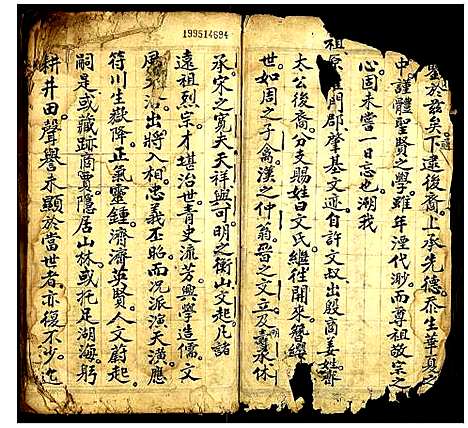 鑒於茲矣下逮後裔上承先德忝生華夏之
中謹體聖賢之學雖年湮代渺而尊祖敬宗之
心固未嘗一日忘也溯我
祖原雁門郡肇基文迹自許文叔出殷商姜姓
太公後裔分支賜姓曰文氏繼往開來簪纓
世如周之子禽漢之仲翁晉之文立承休
199514694
承宋之寬夫天祥與可明之衡山文起凡諸
遠祖烈宗才堪治世青史流芳興學造儒文
風出將入相忠義丕昭而况派演天潢應
符川生嶽降正氣靈鍾濟濟英賢人文蔚起
嗣是或藏跡商賈隱居山林或托足湖海躬
耕井田聲譽未顯於當世者亦復不少迄